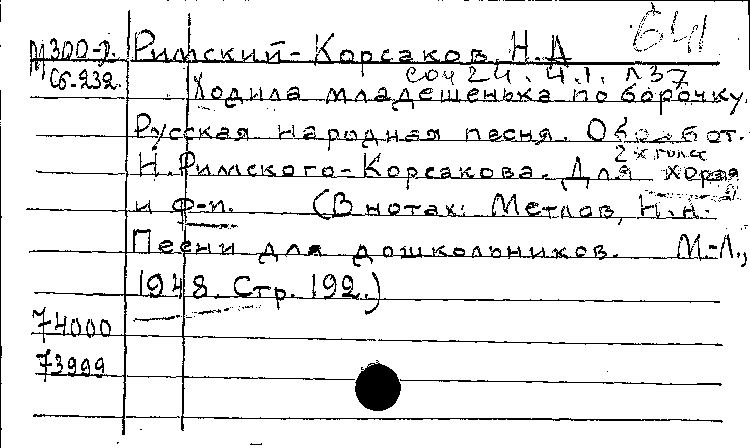 641
М300-2. Римский-Корсаков, Н.А
Сб-232. соч 24. ч.1. л37
Ходила младешенька по борочку.
Русская народная песня. Обработ.
2х голос
Н. Римского-Корсакова. Для хора
и ф-п. (В нотах: Метлов, Н.А.
Песни для дошкольников. М.-Л.,
1948. Стр. 192.)
74000
73999